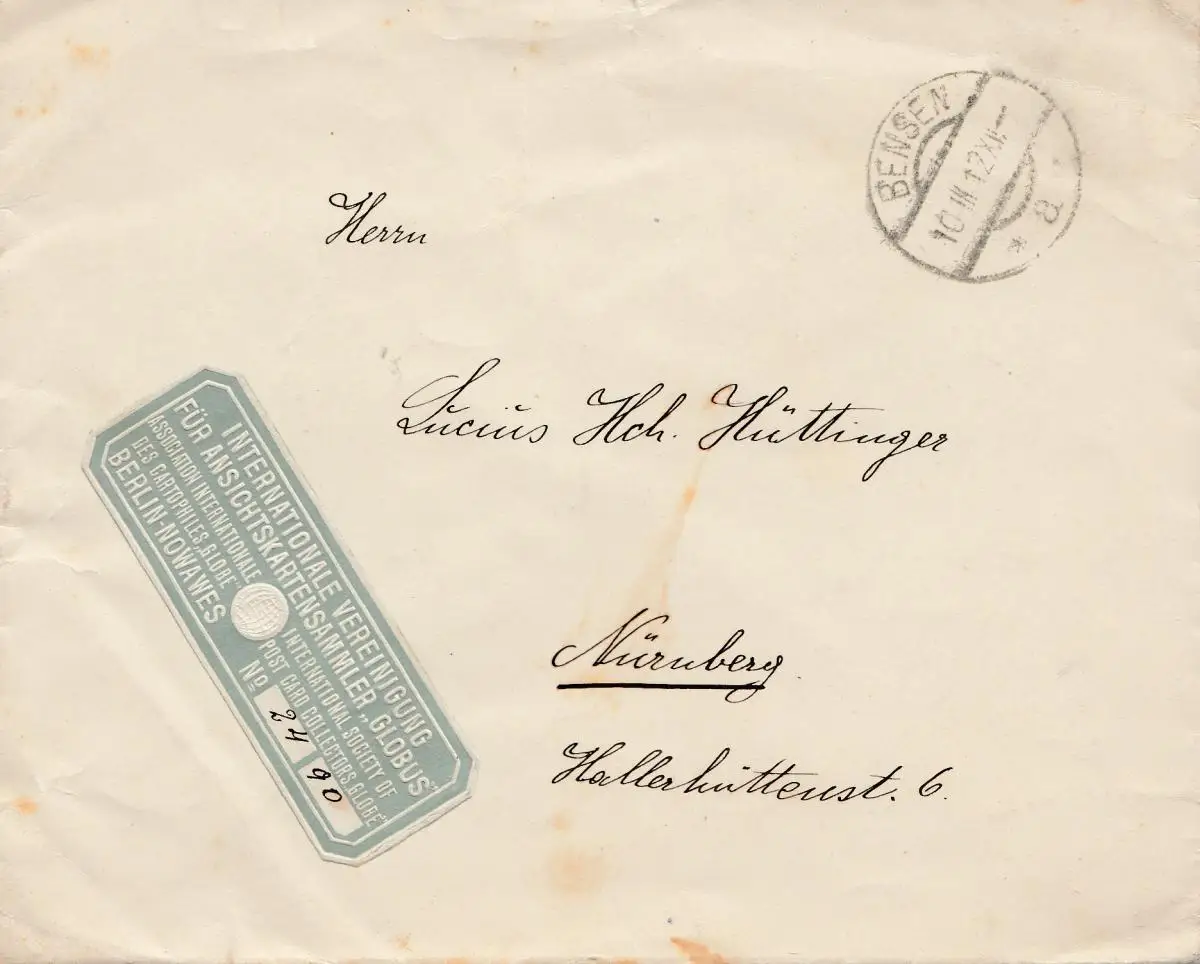 BENSEN
10 III 12 XII-1
* a
Herrn
Lucius Hch. Hüttinger
Nürnberg
Hallerhüttenst. 6.
INTERNATIONALE VEREINIGUNG
FÜR ANSICHTSKARTENSAMMLER „GLOBUS“
ASSOCIATION INTERNATIONALE
DES CARTOPHILES „GLOBE“
BERLIN-NOWAWES
INTERNATIONAL SOCIETY OF
POST CARD COLLECTORS „GLOBE“
No 24 90